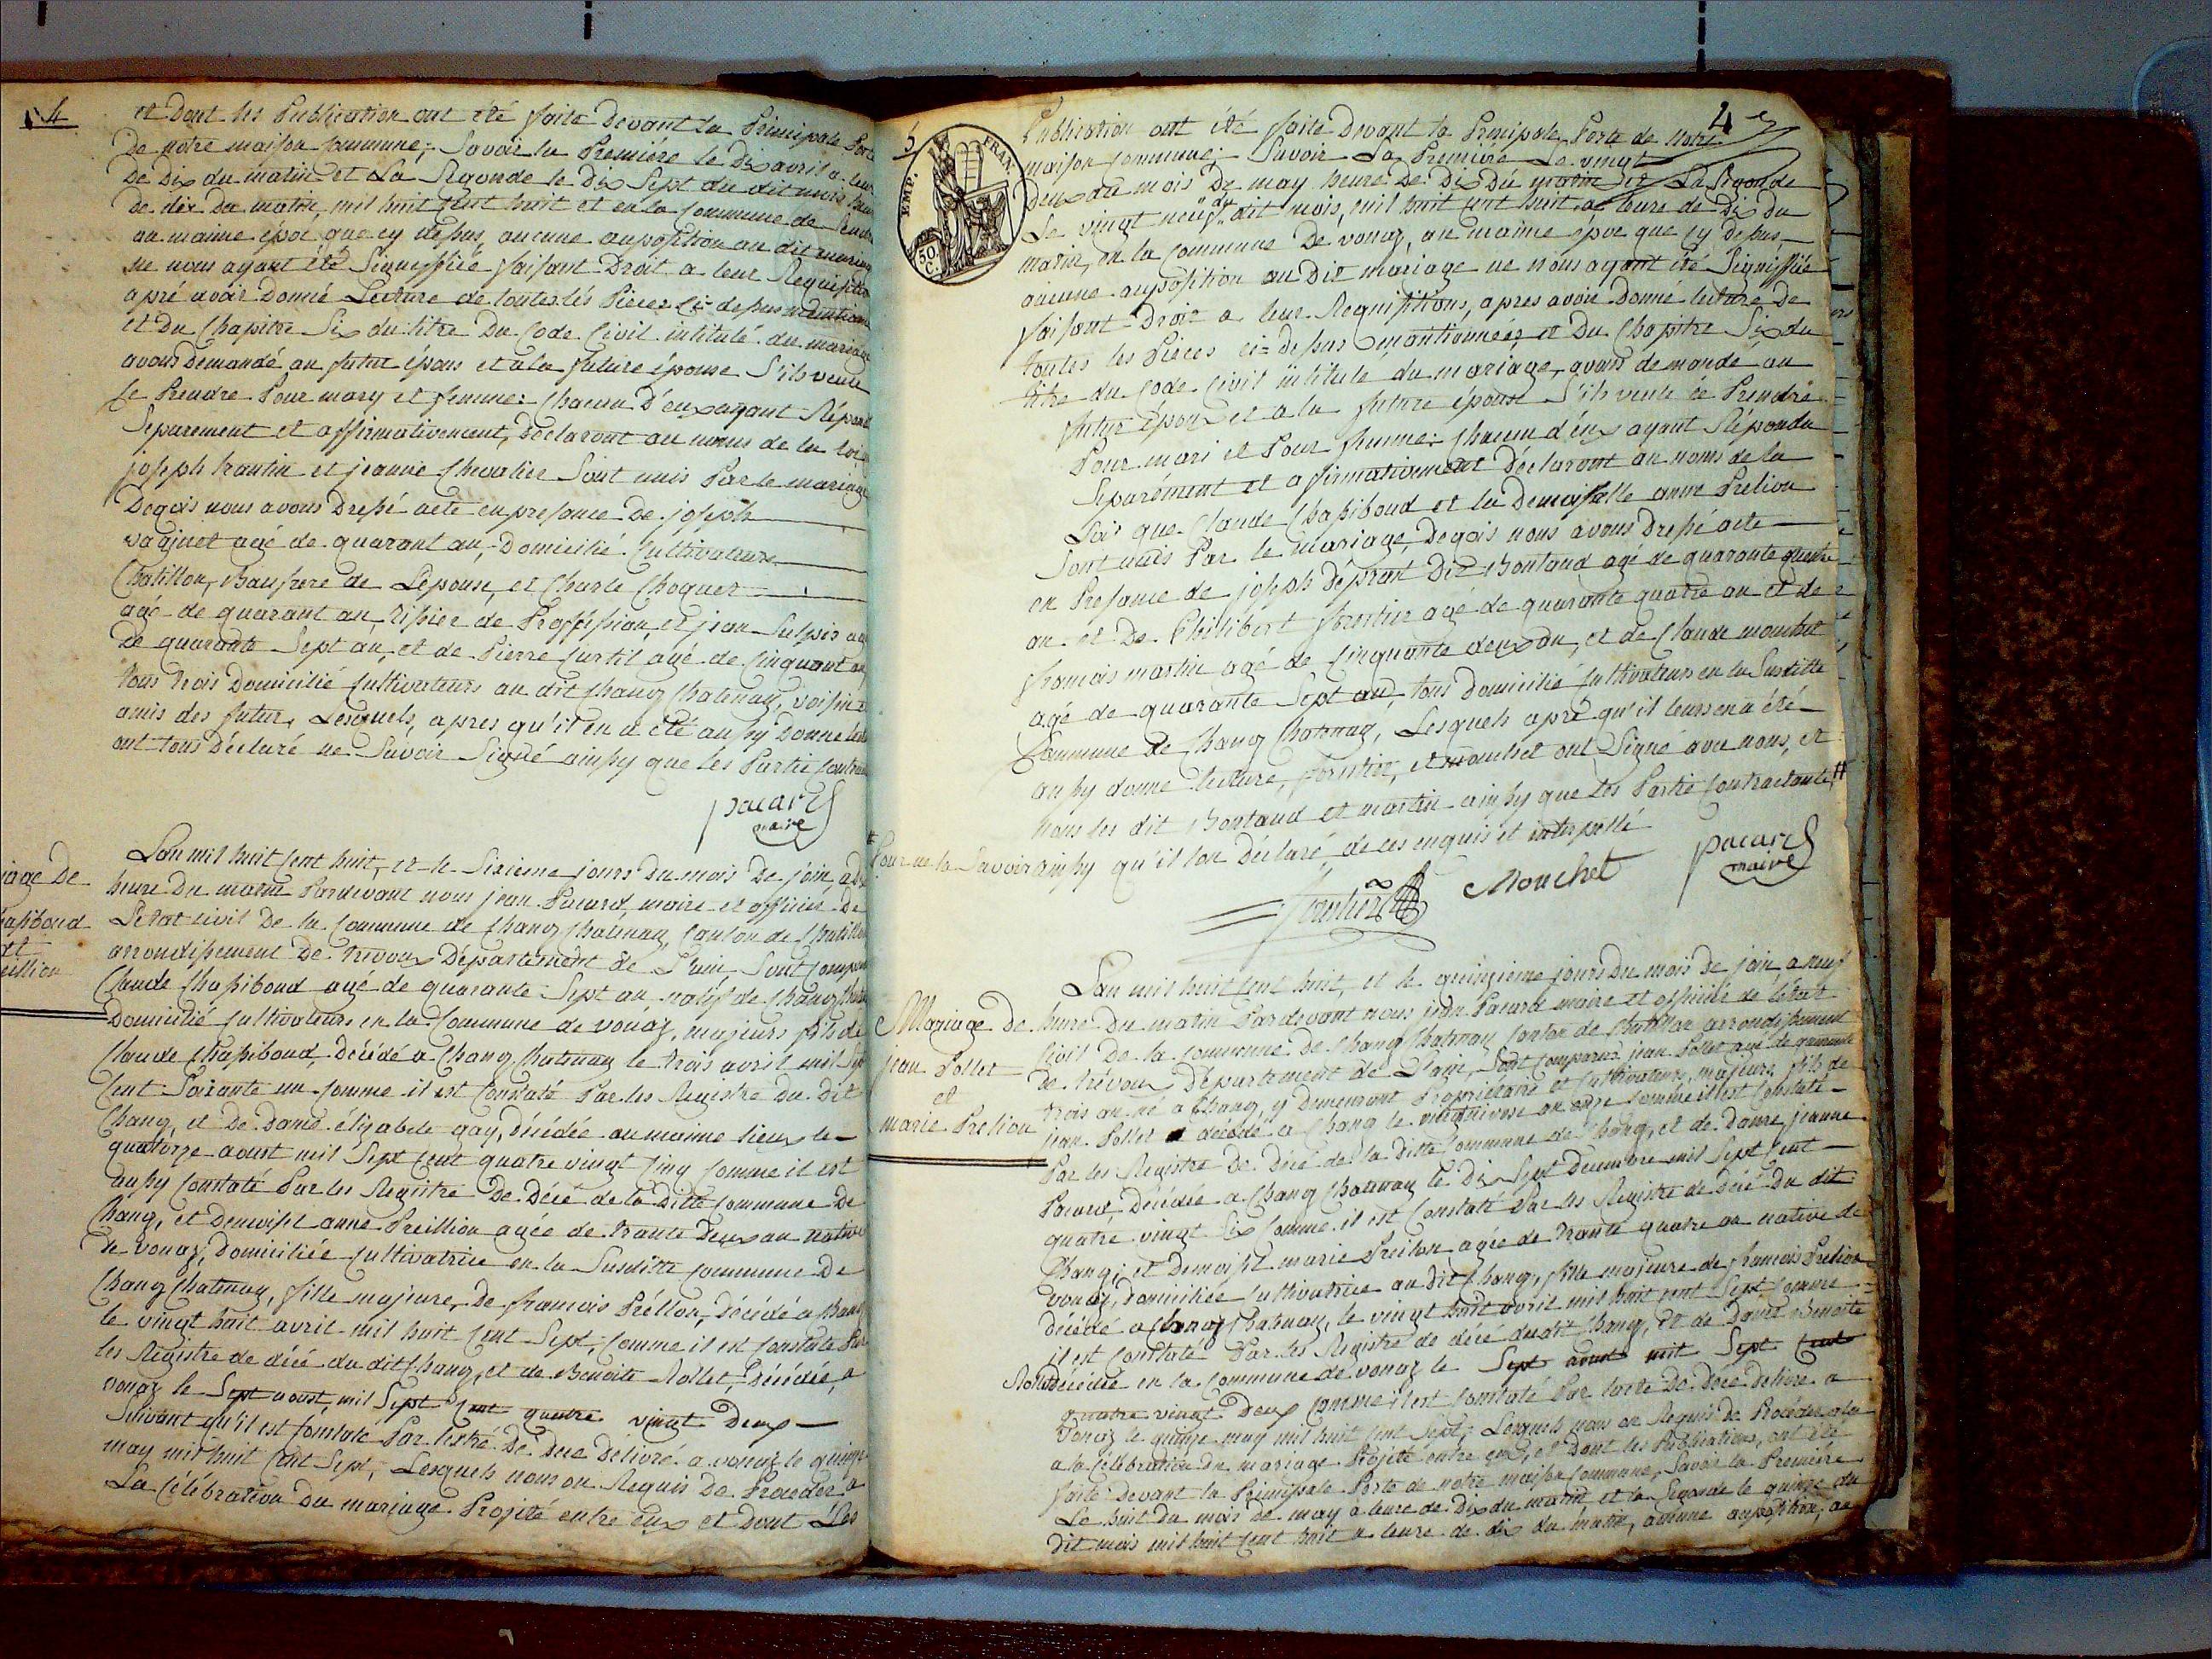 4
et Dont les Publication ont été faite Devant la Principale Porte
De notre maison commune; Savoir la Première le Dix avril a leure
De Dix du matin et La Segonde le Dix Sept du dit mois
de dix du matin, mil huit Cent huit et en la Commune de
au maime epoc que cy dessus, aucune auposition au dit mariage
ne nous ayant été Signiffiée faisant Droit a leur Requisition
apré avoir Donné Lecture de toutes lés Pieces Ci-dessus mention
et Du Chapitre Six du titre Du Code Civil intitulé du mariage
avons Demandé au futur épous et a la future épouse S'ils veule
Se Prendre Pour mary et femme: Chacun D'eux ayant Répondu
Separement et affirmativement, Déclaront au noms de la loi
joseph trantin et jeanne Chevalier Sont unis Par le mariage
Deqois nous avons Dressé acte en presance De joseph
vaginet agé de quarant an, Domicilié Cultivateure
Chatillon, Baufrere de L'épouse, et Charle Choquer
agé de quarant an, de Proffession, et jean Sulpis agé
De quarante Sept an, et de Pierre Curtil agé de Cinquant an
tous trois Domicilié Cultivateurs au dit Chanoz Chatenay, voisin
amis des futur, Lesquels, apres qu'il en a été aussy Donné lec
ont tous Déclaré ne Savoir Signé ainssy que les Partie contrac
pacard
maire
iage De
hassiboud
et
eillion
Lan mil huit Cent huit, et le Sixieme jours Du mois De join, a
heure Du matin Pardevant nous jean Pacard, maire et officier De
L'etat civil De la Commune de Chanoz Chatenay, Canton de Chatillon
arrondissement De trevoux Département de L'ain, Sont compar
Claude Chassiboud agé de quarante Sept an natif de Chanoz
Domicilié Cultivateure en la Commune de vonaz, majeurs fils de
Claude Chassiboud, Décédé a Chanoz Chatenay le trois avril mil Sept
Cent Soixante un comme il est Constaté Par les Registre Du Dit
Chanoz, et De Dame élizabete gay, Décédée au maime lieux le
quatorze aoust mil Sept Cent quatre vingt Cinq comme il est
aussy Constaté Par les Registre De Décé de la Ditte Commune De
Chanoz, et Demoisel anne Preillion agée de trante Deux an native
de vonaz, Domiciliée Cultivatrice en la Susditte commune De
Chanoz Chatenay, fille majeure, De francois Préllon, Décédé a Chanoz
le vingt huit avril mil huit Cent Sept, Comme il est Constaté Par
les Registre de décé du dit Chanoz, et de Benoite Rollet, Décédée, a
vonaz le Sept aoust, mil Sept Cent quatre vingt Deux
Suivant qu'il est Constaté Par De Dece Délivré a vonaz le quinze
may mil huit Cent Sept, Lesquels nous on Requis De Proceder a
La Célébration Du mariage Projété entre eux et Dont Les
5
EMP. FRAN.
50 C.
4e
Publication ont été faite Devant la Principale Porte de notre
maison commune; Savoir La Première Le vingt
Deux du mois De may heure De Dix Du matin et La Segonde
Le vingt neuf du dit mois, mil huit cent huit, a leure de Dix Du
matin, en la Commune De vonaz, au maime époc que cy Dessus,
aucune auposition au Dit mariage ne nous ayant été Signiffiée
faisant Droit a leur Requisitions, apres avoir Donné lecture De
toutes les Pieces ci-dessus mantionnées, et Du Chapitre Six du
titre du Code Civil intitule du mariage, avons demandé au
futur époux et a la future épouse S'ils veule se Prendre
Pour mari et Pour femme: Chacun d'eux ayant Répondu
Separément et afirmativement Déclaront au noms de la
Loi que Claude Chassiboud et la Demoiselle anne Prelion
Sont unis Par le mariage, Deqois nous avons Dressé acte
en Presance de joseph Dit Bontaud agé de quarante quatre
an et De Philibert forestier agé de quarante quatre an et de
francois martin agé de Cinquante deux an, et de Claude mouchet
agé de quarante Sept an, tous Domicilié Cultivateurs en la Susditte
Commune De Chanoz Chatenay, Lesquels apré qu'il leurs en a été
aussy donne lecture, forestier, et mouchet ont Signé avec nous, et
non les dit Bontaud et martin ainssy que les Partie Contractante #
# Pour ne le Savoir ainssy qu'il lon Déclaré, de ces enquis et interpellé
Forestier
Mouchet
pacard
maire
Mariage de
jean Pollet
et
marie Prelion
Lan mil huit Cent huit, et le quinzieme jours Du mois De join, a neuf
heure Du matin Pardevant nous jean Pacard maire et officiér de l'état
Civil De la Commune de Chanoz Chatenay Canton de Chatillon arrondissement
De trévoux Département de L'ain, Sont comparus jean Pollet agé de quarante
trois an né a Chanoz, y Demeurant Proprietaire et Cultivateur, majeurs fils de
jean Pollet décédé a Chanoz le an onze comme il est Constaté
Par les Registre De Décé de la Ditte Commune de Chanoz, et de Dame jeanne
Pacard, Décédée a Chanoz Chatenay le Dix Sept Decembre mil Sept Cent
quatre vingt Six Comme il est Constaté Par les Registre de Décé Du dit
Chanoz; et Demoisel marie Preilon agée de trante quatre an native de
vonaz, domiciliée Cultivatrice au dit Chanoz, fille majeure de francois Prelion
Décédé a Chanoz Chatenay, le vingt huit avril mil huit cent Sept comme
il est Constaté Par les Registre de décé du dit Chanoz, et de Dame Benoite
Rollet Décédée en la Commune de vonaz le Sept aoust mil Sept Cent
quatre vingt Deux comme il est Constaté Par lacte De Dece Delivre a
vonaz le quinze may mil huit Cent Sept; Lesquels nous on Requis De Proceder
a la Célébration du mariage Projété entre eux, et Dont les Publications, ont été
faite Devant la Principale Porte de notre maison Commune, Savoir la Premiére
Le huit Du mois De may a leure de Dix du matin et la Segonde le quinze du
dit mois mil huit Cent huit a leure de dix du matin, aucune auposition, au